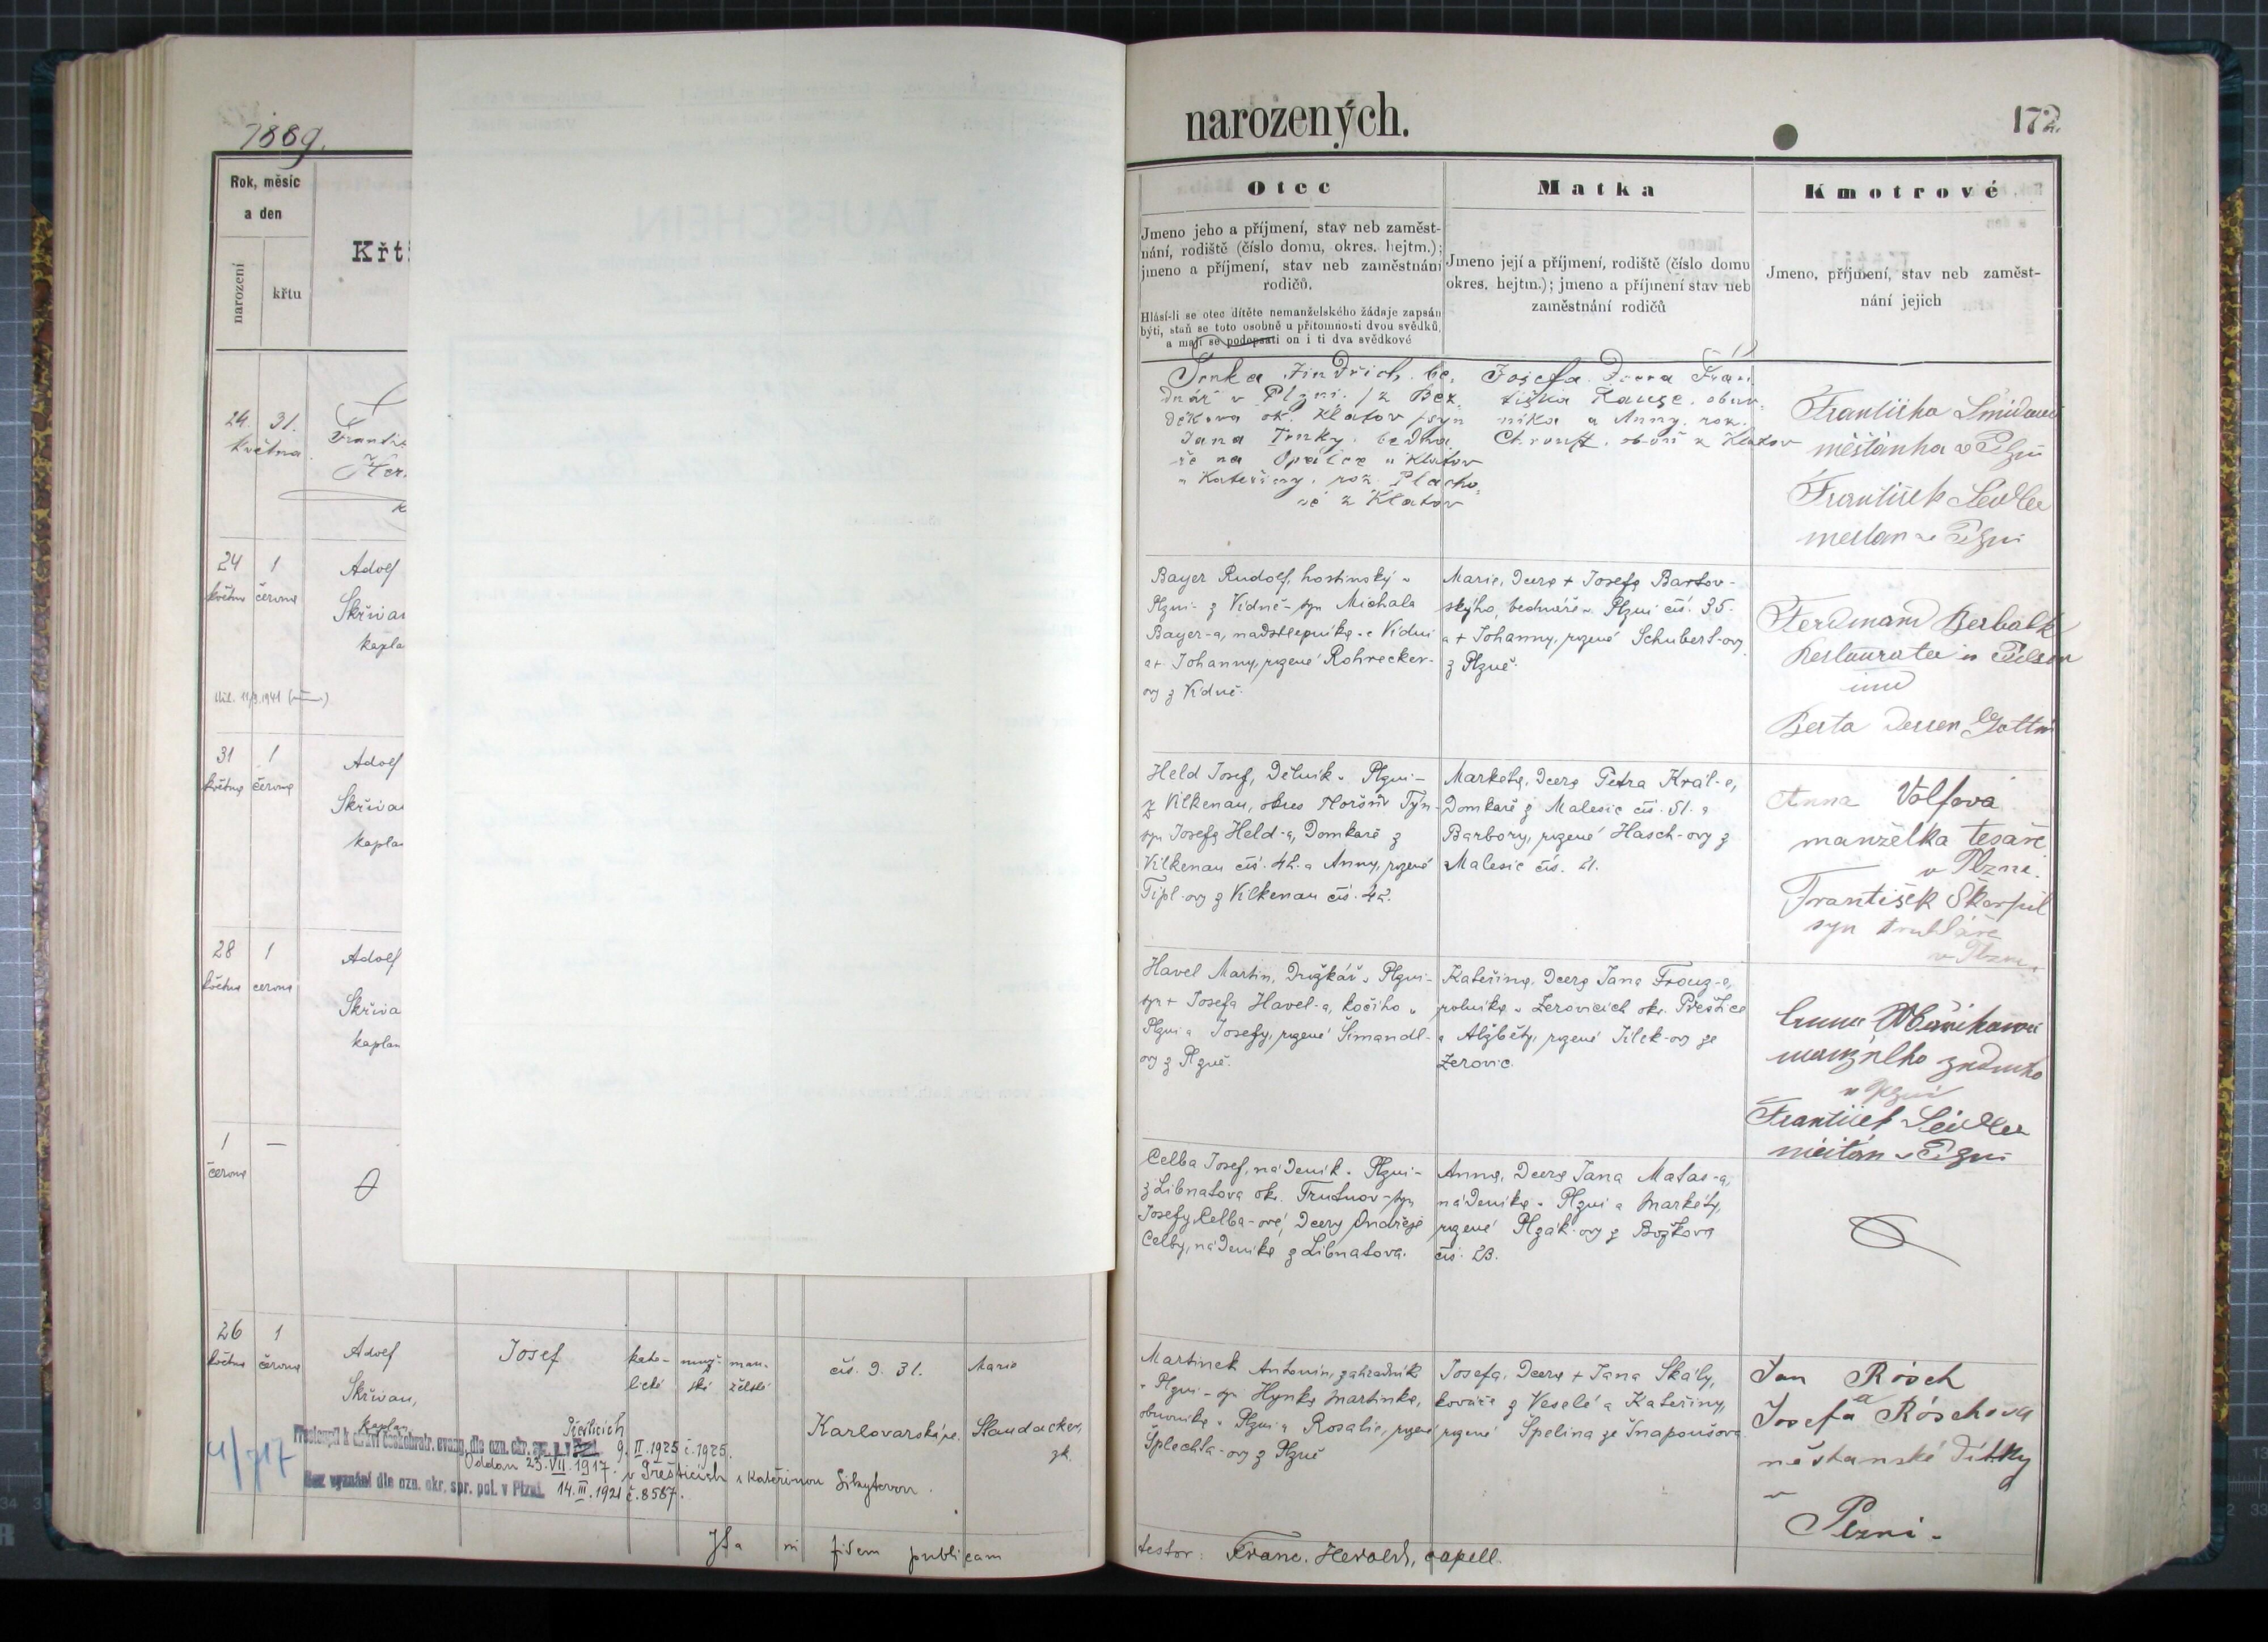 1889.
Rok, měsíc
a den
narození
křtu
Křti
24. 31.
května
Franti
Her
24 1
května června
Adolf
Skřivan
kapla
31 1
května června
Adolf
Skřivan
kaplan
28 1
května června
Adolf
Skřiva
kaplan
1 —
června
26 1
května června
Adolf
Skřivan,
kaplan
Josef
kato-
lické
muž-
ské
man-
želské
čís. 9. 31.
Karlovarská
Marie
Staudacher,
zk.
4/717
Přestoupil k církvi českobratr. evang. dle ozn. okr. 9. II. 1925 č. 1925.
Oddán 23. VII. 1917. v Přešticích s Kateřinou
Bez vyznání dle ozn. okr. spr. pol. v Plzni. 14. III. 1921 č. 8587.
Ita in fidem publicam
TAUFSCHEIN
narozených.
172
Otec
Jmeno jeho a příjmení, stav neb zaměst-
nání, rodiště (číslo domu, okres. hejtm.);
jmeno a příjmení, stav neb zaměstnání
rodičů.
Hlásí-li se otec dítěte nemanželského žádaje zapsán
býti, staň se toto osobně u přítomnosti dvou svědků,
a mají se podepsati on i ti dva svědkové
Matka
Jmeno její a příjmení, rodiště (číslo domu
okres. hejtm.); jmeno a příjmení stav neb
zaměstnání rodičů
Kmotrové
Jmeno, příjmení, stav neb zaměst-
nání jejich
Trnka Jindřich, be-
dnář v Plzni, /z Bez-
děkova ok. Klatov /syn
Jana Trnky, bedná-
ře na Opálce u Klatov
a Kateřiny, roz. Placho-
vé z Klatov
Josefa dcera Fran-
tiška Rause, obuv-
níka a Anny, roz.
Chroust, obou z Klatov
Františka Šmídova
měšťanka v Plzni
František Seidler
měšťan v Plzni
Bayer Rudolf, hostinský v
Plzni - z Vídně - syn Michala
Bayer-a, nadsklepníka ve Vídni
a + Johanny, rozené Rohrecker-
ovy z Vídně.
Marie, dcera + Josefa Bartov-
ského, bednáře v Plzni čís. 35.
a + Johanny, rozené Schubert-ovy
z Plzně.
Ferdinand Berbalk
Restaurateur in Pilsen
und
Berta dessen Gattin
Held Josef, dělník v Plzni -
z Vilkenau, okres Horšův Týn -
syn Josefa Held-a, domkaře z
Vilkenau čís. 42. a Anny, rozené
Tipl-ovy z Vilkenau čís. 42.
Markéta, dcera Petra Král-e,
domkaře z Malesic čís. 51. a
Barbory, rozené Hasch-ovy z
Malesic čís. 21.
Anna Volfová
manželka tesaře
v Plzni.
František Škarpil
syn truhláře
v Plzni.
Havel Martin, družkář v Plzni -
syn + Josefa Havel-a, kočího v
Plzni a Josefy, rozené Šimandl-
ovy z Plzně.
Kateřina, dcera Jana Frouz-e,
rolníka v Žerovicích okr. Přeštice
a Alžběty, rozené Jílek-ovy ze
Žerovic.
Anna
manželka zedníka
v Plzni
František Seidler
měšťan v Plzni
Celba Josef, nádeník v Plzni -
z Libnatova okr. Trutnov - syn
Josefy Celba-ové, dcery Ondřeje
Celby, nádeníka z Libnatova.
Anna, dcera Jana Matas-a,
nádeníka v Plzni a Markéty,
rozené Plzák-ovy z Božkova
čís. 23.
Martinek Antonín, zahradník
v Plzni - syn Hynka Martinka,
obuvníka v Plzni a Rosalie, rozené
Šplechta-ovy z Plzně
Josefa, dcera + Jana Skály,
kováře z Veselé a Kateřiny,
rozené Spelina ze Snopoušova.
Jan Rösch
a
Josefa Röschova
měšťanské dítky
v
Plzni.
testor: Franc. Herold, capell.